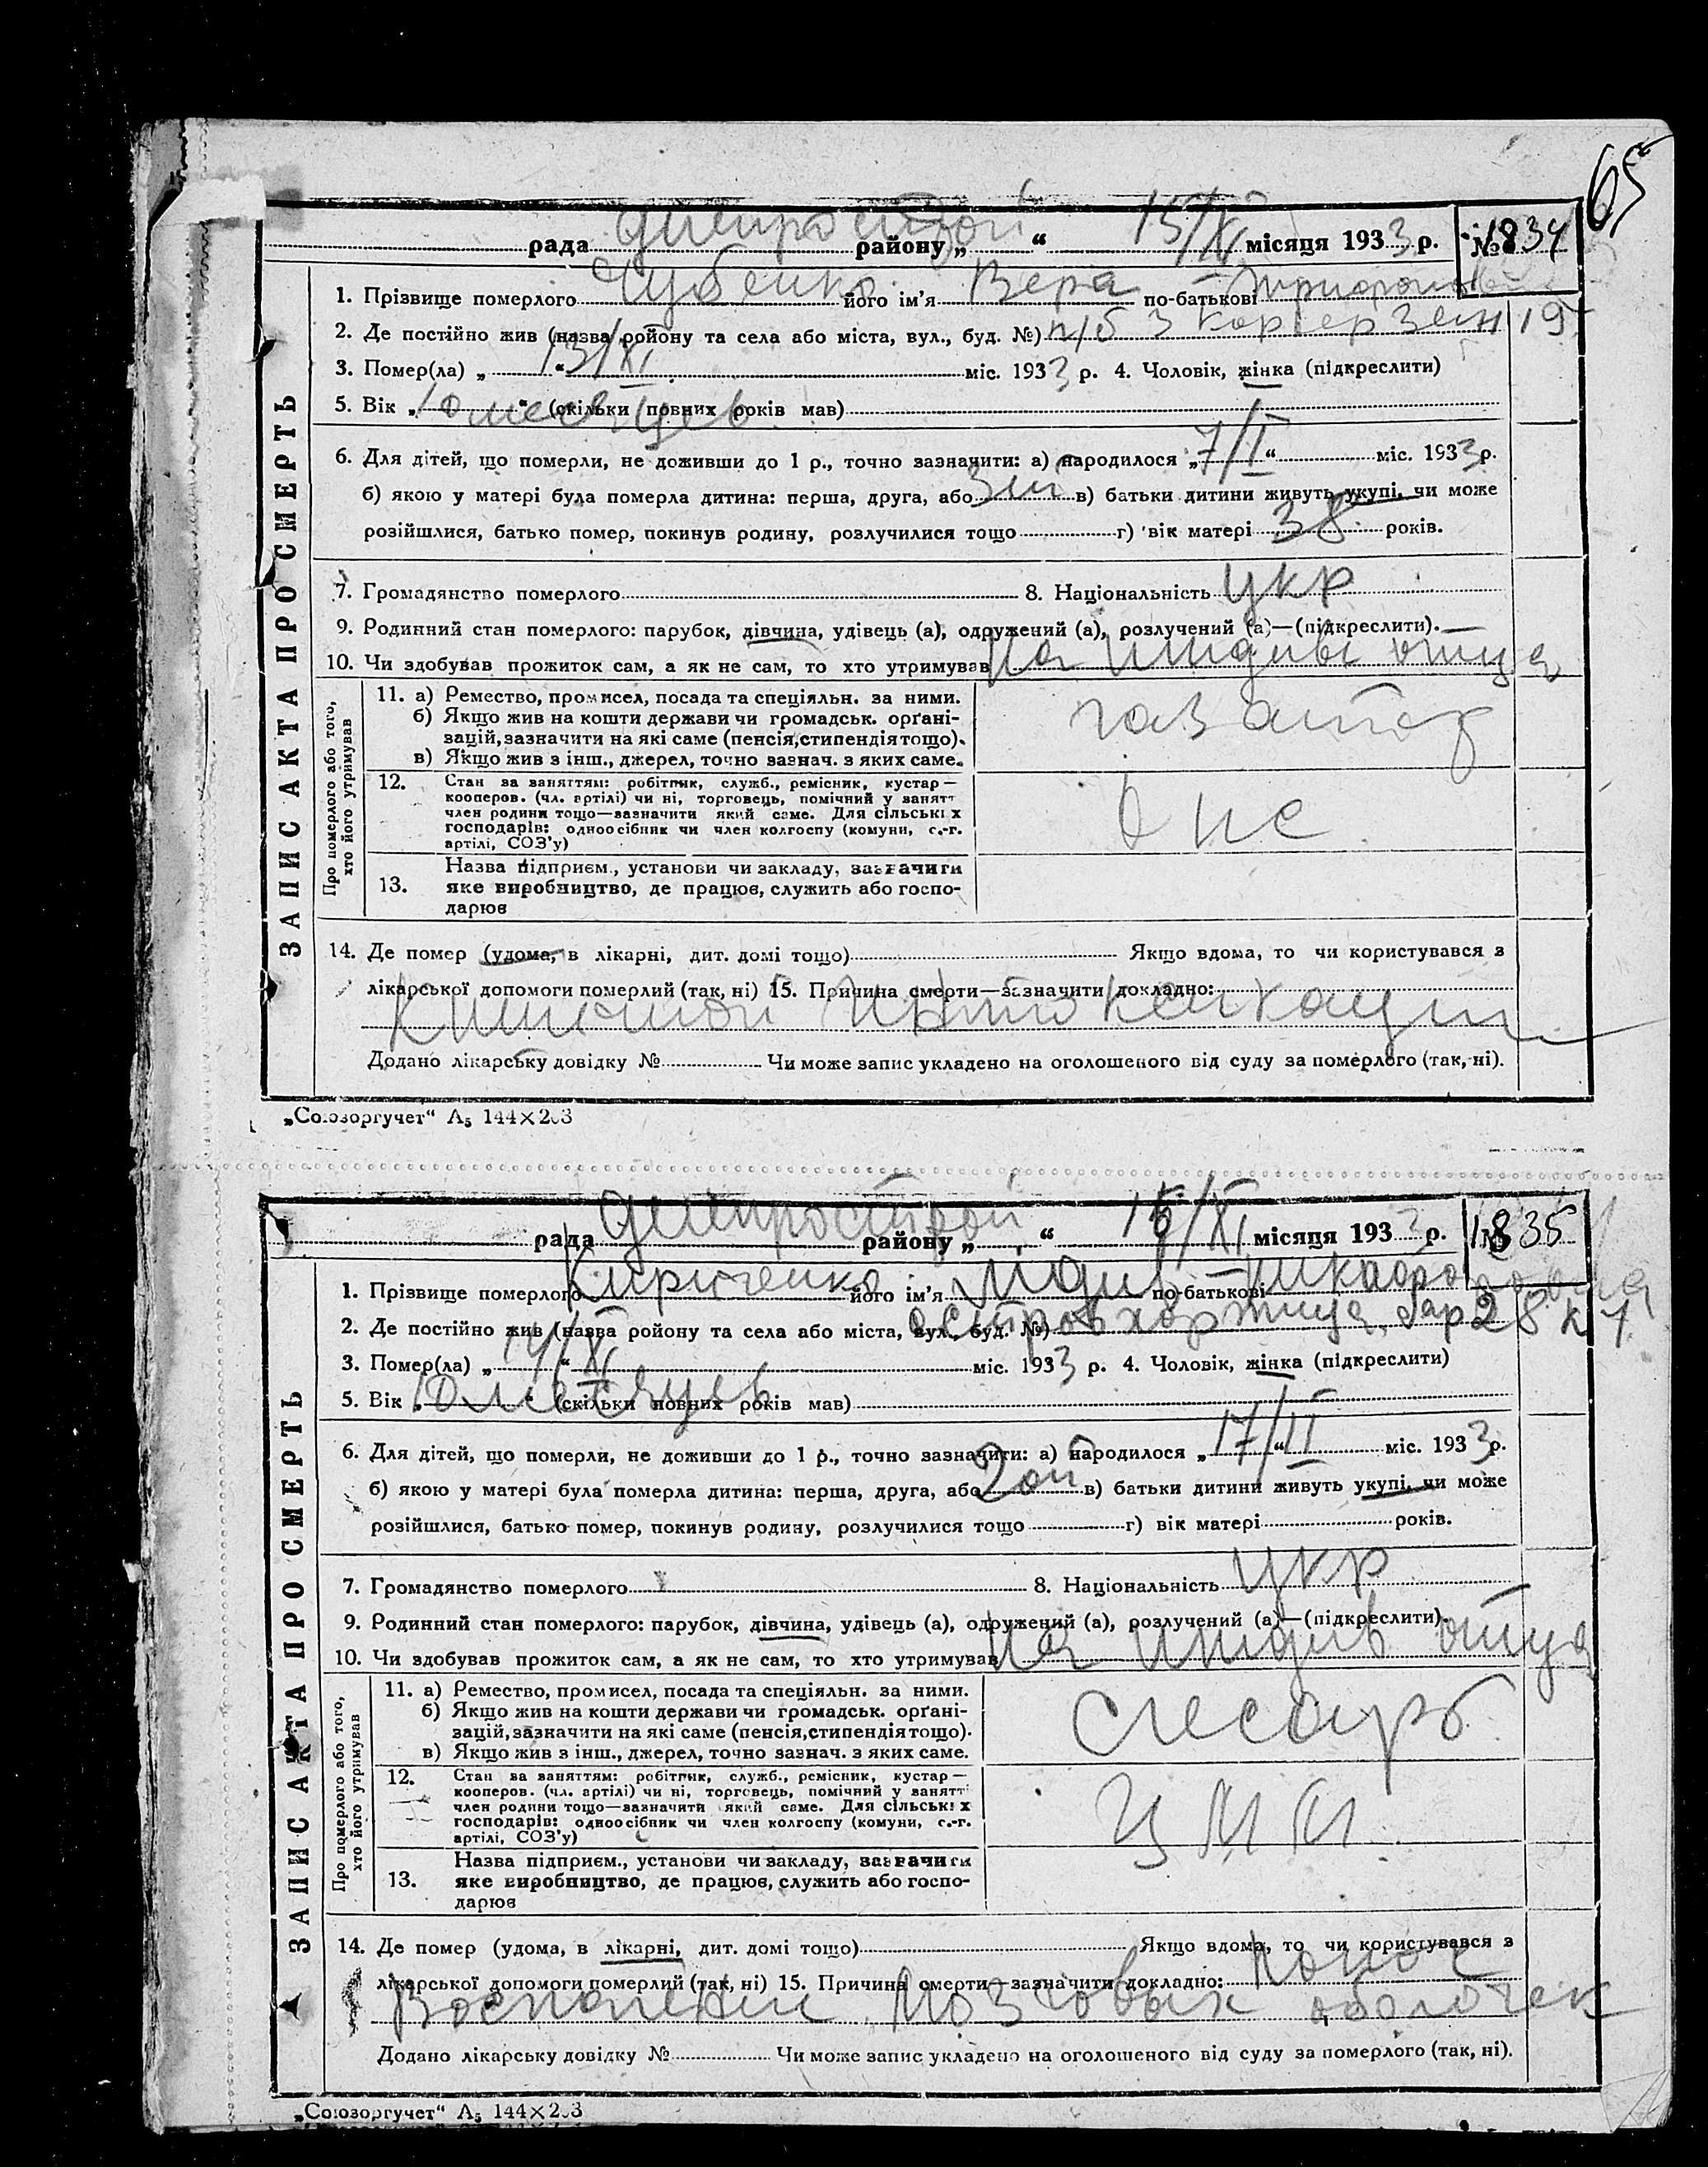 65
рада Днепрострой району „ “ 15/XI місяця 1933 р. № 1834
ЗАПИС АКТА ПРО СМЕРТЬ
1. Прізвище померлого Чубенко його ім'я Вера по-батькові
2. Де постійно жив (назва ройону та села або міста, вул., буд. №) 19
3. Помер(ла) „ 13/XI “ міс. 1933 р. 4. Чоловік, жінка (підкреслити)
5. Вік „ 10 месяцев “ (скільки повних років мав)
6. Для дітей, що померли, не доживши до 1 р., точно зазначити: а) народилося „ 7/I “ міс. 1933 р.
б) якою у матері була померла дитина: перша, друга, або 3й в) батьки дитини живуть укупі, чи може
розійшлися, батько помер, покинув родину, розлучилися тощо г) вік матері 38 років.
7. Громадянство померлого 8. Національність укр
9. Родинний стан померлого: парубок, дівчина, удівець (а), одружений (а), розлучений (а)—(підкреслити).
10. Чи здобував прожиток сам, а як не сам, то хто утримував на иждив отца
Про померлого або того, хто його утримував
11. а) Ремество, промисел, посада та спеціяльн. за ними.
б) Якщо жив на кошти держави чи громадськ. орґані-
зацій, зазначити на які саме (пенсія, стипендія тощо).
в) Якщо жив з інш., джерел, точно зазнач. з яких саме.
12. Стан за заняттям: робітник, служб., ремісник, кустар—
кооперов. (чл. артілі) чи ні, торговець, помічний у занятт
член родини тощо—зазначити який саме. Для сільських
господарів: одноосібник чи член колгоспу (комуни, с.-г.
артілі, СОЗ'у)
Назва підприєм., установи чи закладу, зазначити
13. яке виробництво, де працює, служить або госпо-
дарює
14. Де помер (удома, в лікарні, дит. домі тощо) Якщо вдома, то чи користувався з
лікарської допомоги померлий (так, ні) 15. Причина смерти—зазначити докладно:
Додано лікарську довідку № Чи може запис укладено на оголошеного від суду за померлого (так, ні).
„Союзоргучет“ А₅ 144×203
рада Днепрострой району „ “ 15/XI місяця 1933 р. № 1835
ЗАПИС АКТА ПРО СМЕРТЬ
1. Прізвище померлого Кириченко його ім'я по-батькові
2. Де постійно жив (назва ройону та села або міста, вул., буд. №) остров хортица, бар 28 к 1
3. Помер(ла) „ 14/XI “ міс. 1933 р. 4. Чоловік, жінка (підкреслити)
5. Вік „ 10 месяцев “ (скільки повних років мав)
6. Для дітей, що померли, не доживши до 1 р., точно зазначити: а) народилося „ 17/II “ міс. 1933 р.
б) якою у матері була померла дитина: перша, друга, або 2ой в) батьки дитини живуть укупі, чи може
розійшлися, батько помер, покинув родину, розлучилися тощо г) вік матері років.
7. Громадянство померлого 8. Національність укр
9. Родинний стан померлого: парубок, дівчина, удівець (а), одружений (а), розлучений (а)—(підкреслити).
10. Чи здобував прожиток сам, а як не сам, то хто утримував на иждив отца
Про померлого або того, хто його утримував
11. а) Ремество, промисел, посада та спеціяльн. за ними. слесарь
б) Якщо жив на кошти держави чи громадськ. орґані-
зацій, зазначити на які саме (пенсія, стипендія тощо).
в) Якщо жив з інш., джерел, точно зазнач. з яких саме.
12. Стан за заняттям: робітник, служб., ремісник, кустар—
кооперов. (чл. артілі) чи ні, торговець, помічний у занятті
член родини тощо—зазначити який саме. Для сільських
господарів: одноосібник чи член колгоспу (комуни, с.-г.
артілі, СОЗ'у)
Назва підприєм., установи чи закладу, зазначити
13. яке виробництво, де працює, служить або госпо-
дарює
14. Де помер (удома, в лікарні, дит. домі тощо) Якщо вдома, то чи користувався з
лікарської допомоги померлий (так, ні) 15. Причина смерти—зазначити докладно: понос
Воспалении мозговых оболочек
Додано лікарську довідку № Чи може запис укладено на оголошеного від суду за померлого (так, ні).
„Союзоргучет“ А₅ 144×203